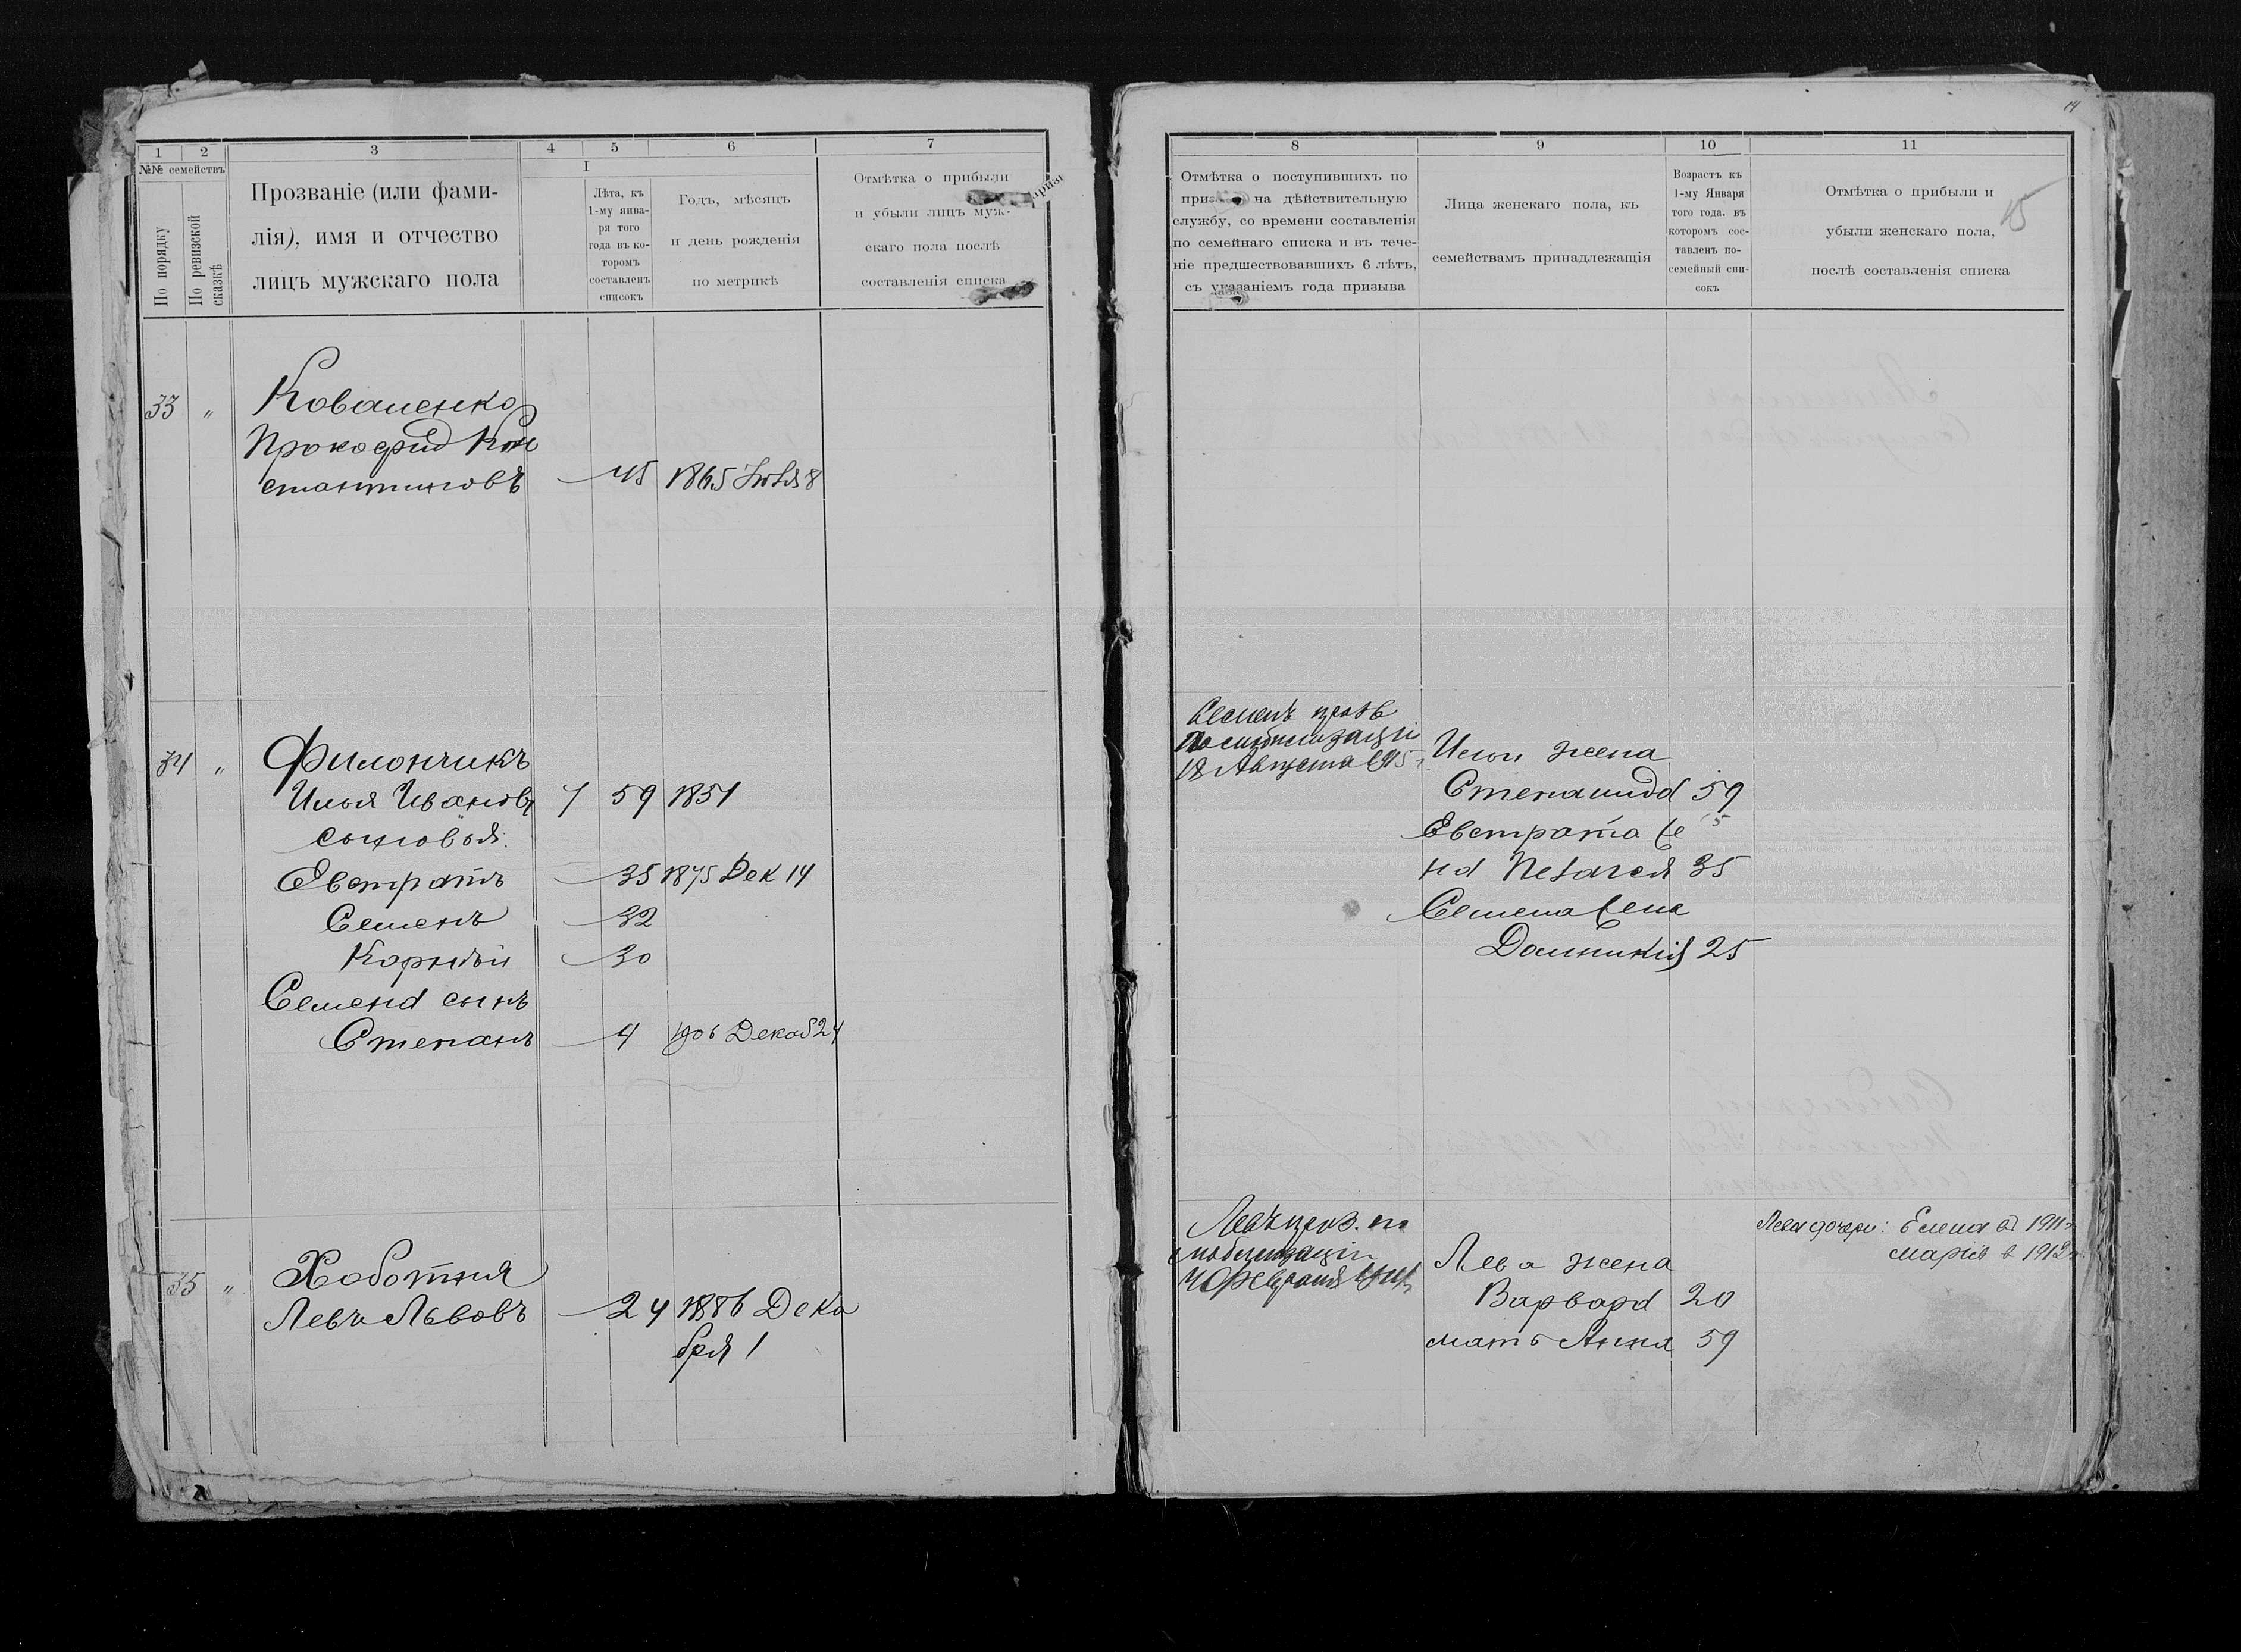 1 2 3 4 5 6 7
№№ семействъ
По порядку
По ревизской сказкѣ
Прозваніе (или фами-
лія), имя и отчество
лицъ мужскаго пола
I
Лѣта, къ
1-му янва-
ря того
года въ ко-
торомъ
составленъ
списокъ
Годъ, мѣсяцъ
и день рожденія
по метрикѣ
Отмѣтка о прибыли
и убыли лицъ муж-
скаго пола послѣ
составленія списка
33 „ Коваленко
Прокофій Кон
стантиновъ 45 1865 Іюля 8
34 „ Филончикъ
Илья Ивановъ 59 1851
сыновья.
Евстратъ 35 1875 Дек 14
Семенъ 32
Корній 30
Семена сынъ
Степанъ 4 1906 Декаб 24
35 „ Хоботня
Левъ Львовъ 24 1886 Дека
бря 1
14
8 9 10 11
Отмѣтка о поступившихъ по
на дѣйствительную
службу, со времени составленія
по семейнаго списка и въ тече-
ніе предшествовавшихъ 6 лѣтъ,
съ указаніемъ года призыва
Лица женскаго пола, къ
семействамъ принадлежащія
Возрастъ къ
1-му Января
того года. въ
которомъ сос-
тавленъ по-
семейный спи-
сокъ
Отмѣтка о прибыли и
убыли женскаго пола,
послѣ составленія списка
15
Семенъ призв
По мобилизаціи
18 Августа 1915 г.
Ильи жена
Степанида 59
Евстрата же
на Пелагея 35
Семена жена
Домникія 25
Левъ призв. по
мобилизаціи
Лева жена
Варвара 20
мать Анна 59
Лева дочери: Елена въ 1911 г.
Марія в 1912 г.